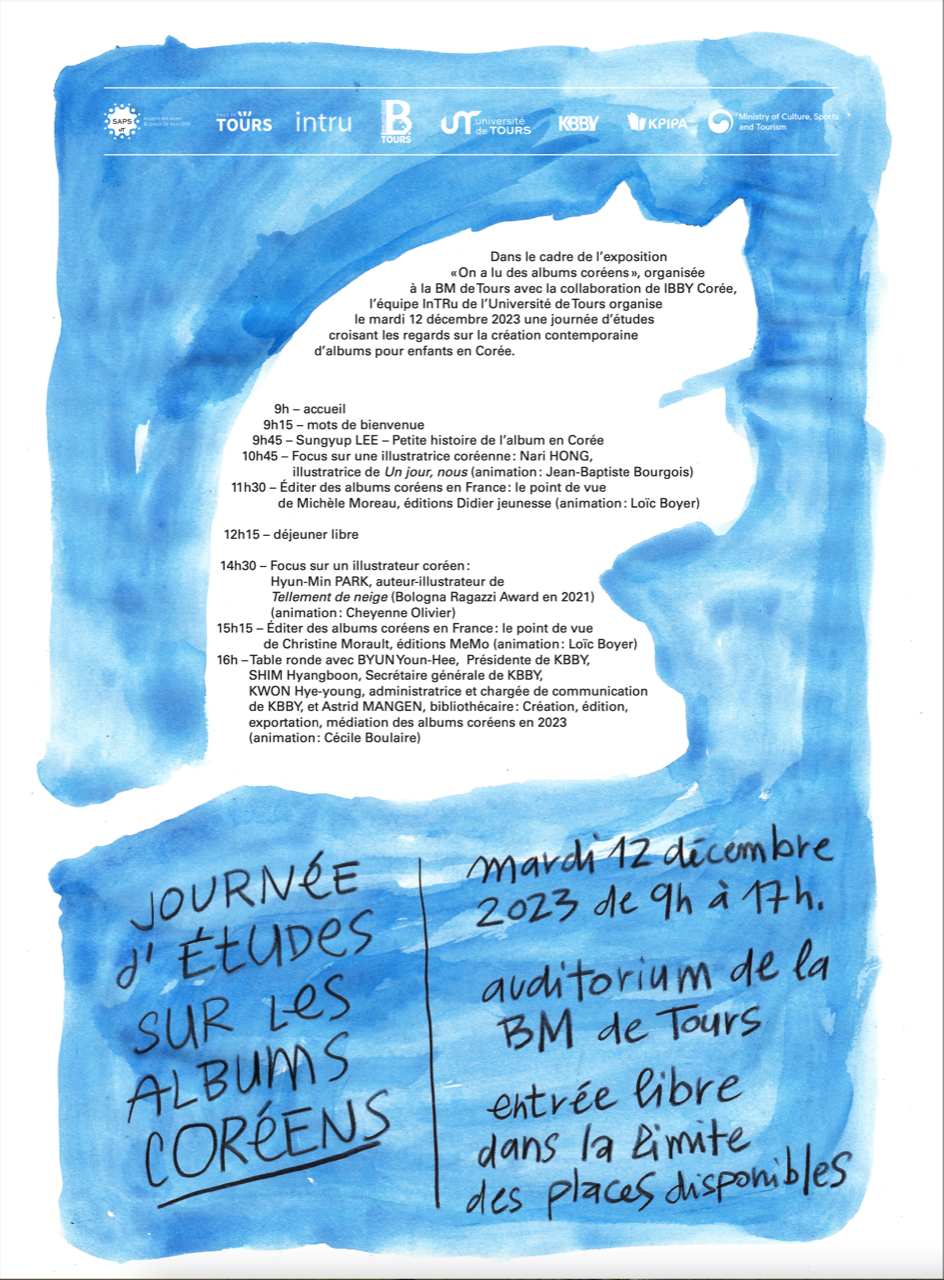 SAPS
sciences avec
& pour la société
VILLE DE
TOURS
intru
B
TOURS
université
de TOURS
KBBY
KPIPA
Ministry of Culture, Sports
and Tourism
Dans le cadre de l'exposition
«On a lu des albums coréens», organisée
à la BM de Tours avec la collaboration de IBBY Corée,
l'équipe InTRu de l'Université de Tours organise
le mardi 12 décembre 2023 une journée d'études
croisant les regards sur la création contemporaine
d'albums pour enfants en Corée.
9h – accueil
9h15 – mots de bienvenue
9h45 – Sungyup LEE – Petite histoire de l'album en Corée
10h45 – Focus sur une illustratrice coréenne : Nari HONG,
illustratrice de Un jour, nous (animation : Jean-Baptiste Bourgois)
11h30 – Éditer des albums coréens en France : le point de vue
de Michèle Moreau, éditions Didier jeunesse (animation : Loïc Boyer)
12h15 – déjeuner libre
14h30 – Focus sur un illustrateur coréen :
Hyun-Min PARK, auteur-illustrateur de
Tellement de neige (Bologna Ragazzi Award en 2021)
(animation : Cheyenne Olivier)
15h15 – Éditer des albums coréens en France : le point de vue
de Christine Morault, éditions MeMo (animation : Loïc Boyer)
16h – Table ronde avec BYUN Youn-Hee, Présidente de KBBY,
SHIM Hyangboon, Secrétaire générale de KBBY,
KWON Hye-young, administratrice et chargée de communication
de KBBY, et Astrid MANGEN, bibliothécaire : Création, édition,
exportation, médiation des albums coréens en 2023
(animation : Cécile Boulaire)
JOURNÉE
d'ÉTUDES
SUR LES
ALBUMS
CORÉENS
mardi 12 décembre
2023 de 9h à 17h.
auditorium de la
BM de Tours
entrée libre
dans la limite
des places disponibles